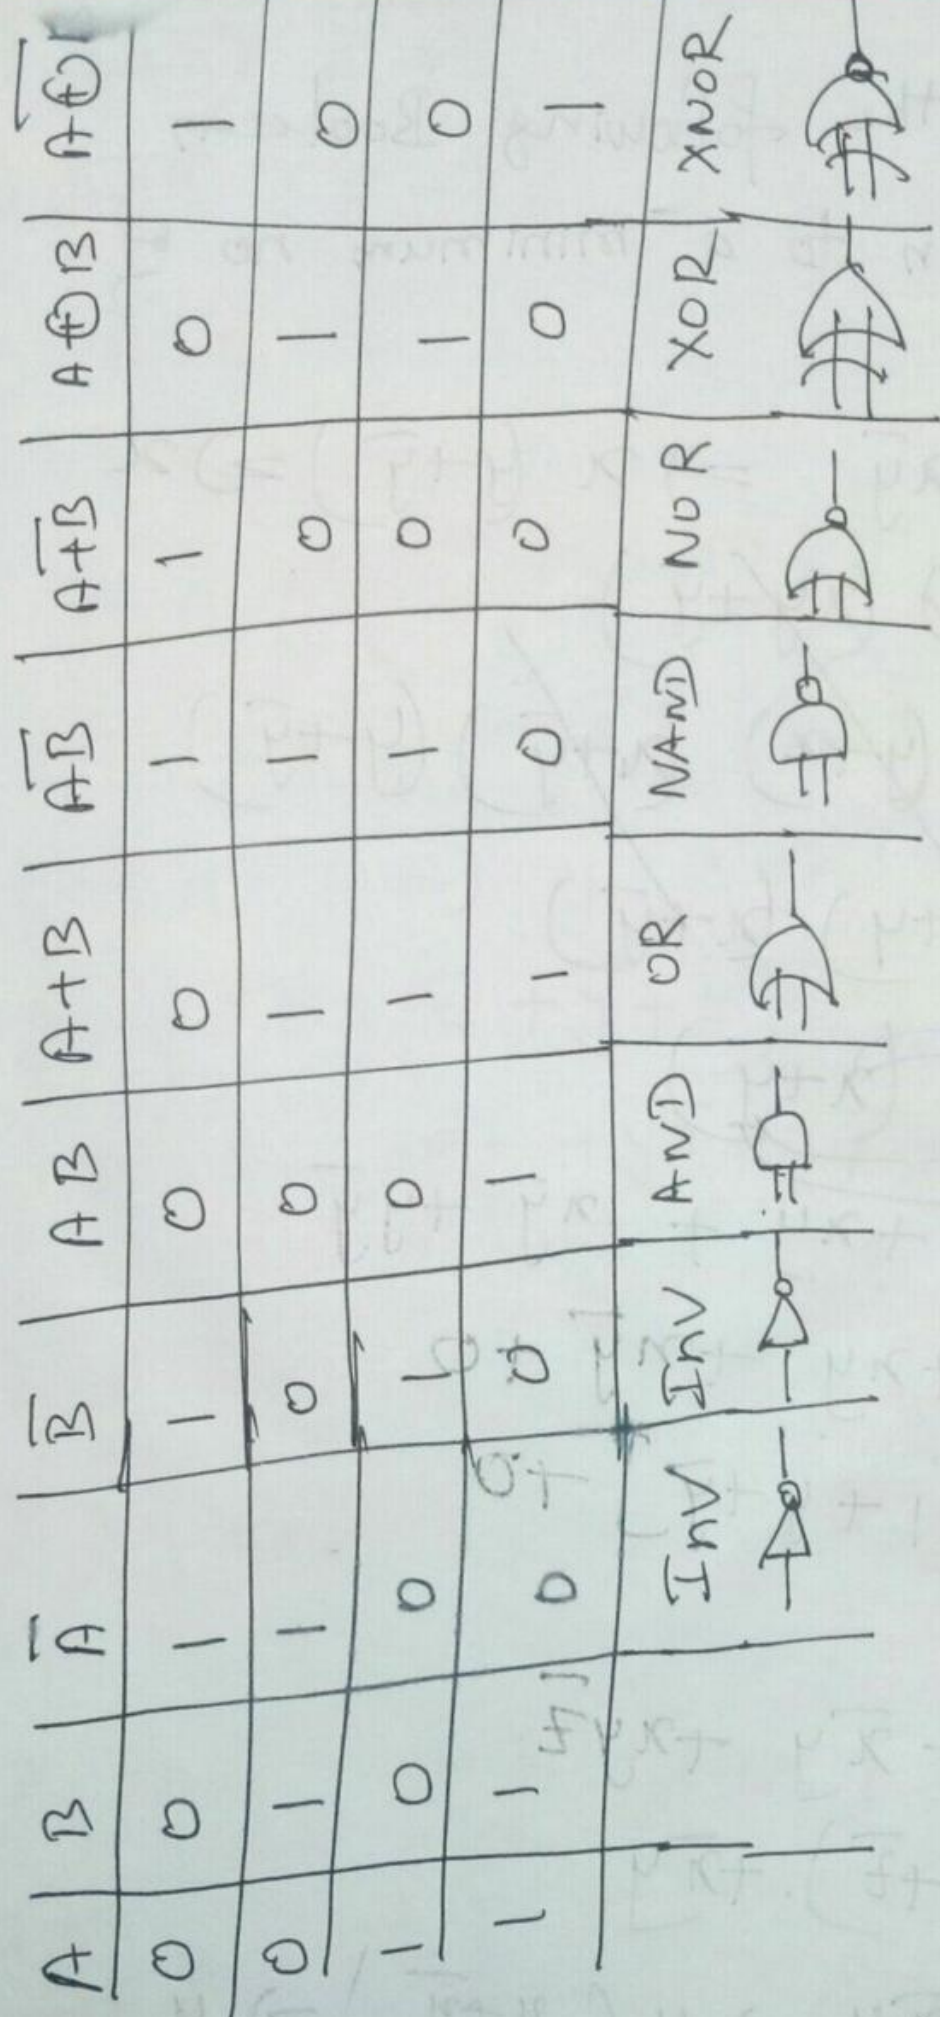 A B A̅ B̅ AB A+B A̅B̅ A̅+̅B̅ A⊕B A̅⊕̅
0 0 1 1 0 0 1 1 0 1
0 1 1 0 0 1 1 0 1 0
1 0 0 1 0 1 1 0 1 0
1 1 0 0 1 1 0 0 0 1
Inv Inv AND OR NAND NOR XOR XNOR